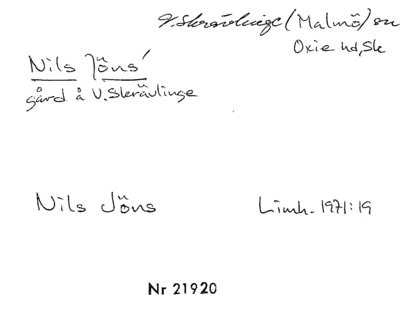 V. Skrävlinge (Malmö) sn
Oxie hd, Sk
Nils Jöns'
gård å V. Skrävlinge
Nils Jöns Limh. 1971:19
Nr 21920